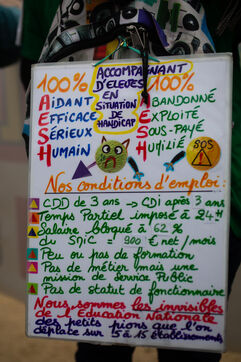 100% ACCOMPAGNANT 100%
D'ELEVES
EN
SITUATION
DE
HANDICAP
AIDANT ABANDONNÉ
EFFICACE EXPLOITÉ
SÉRIEUX SOUS-PAYÉ
HUMAIN HUMILIÉ
SOS
Nos conditions d'emploi :
CDD de 3 ans → CDI après 3 ans
Temps Partiel imposé à 24H
Salaire bloqué à 62 %
du SMIC = 900 € net / mois
Peu ou pas de formation
Pas de métier mais une
mission de Service Public
Pas de statut de fonctionnaire
Nous sommes les invisibles
de l'Éducation Nationale
des petits pions que l'on
déplace sur 5 à 15 établissements